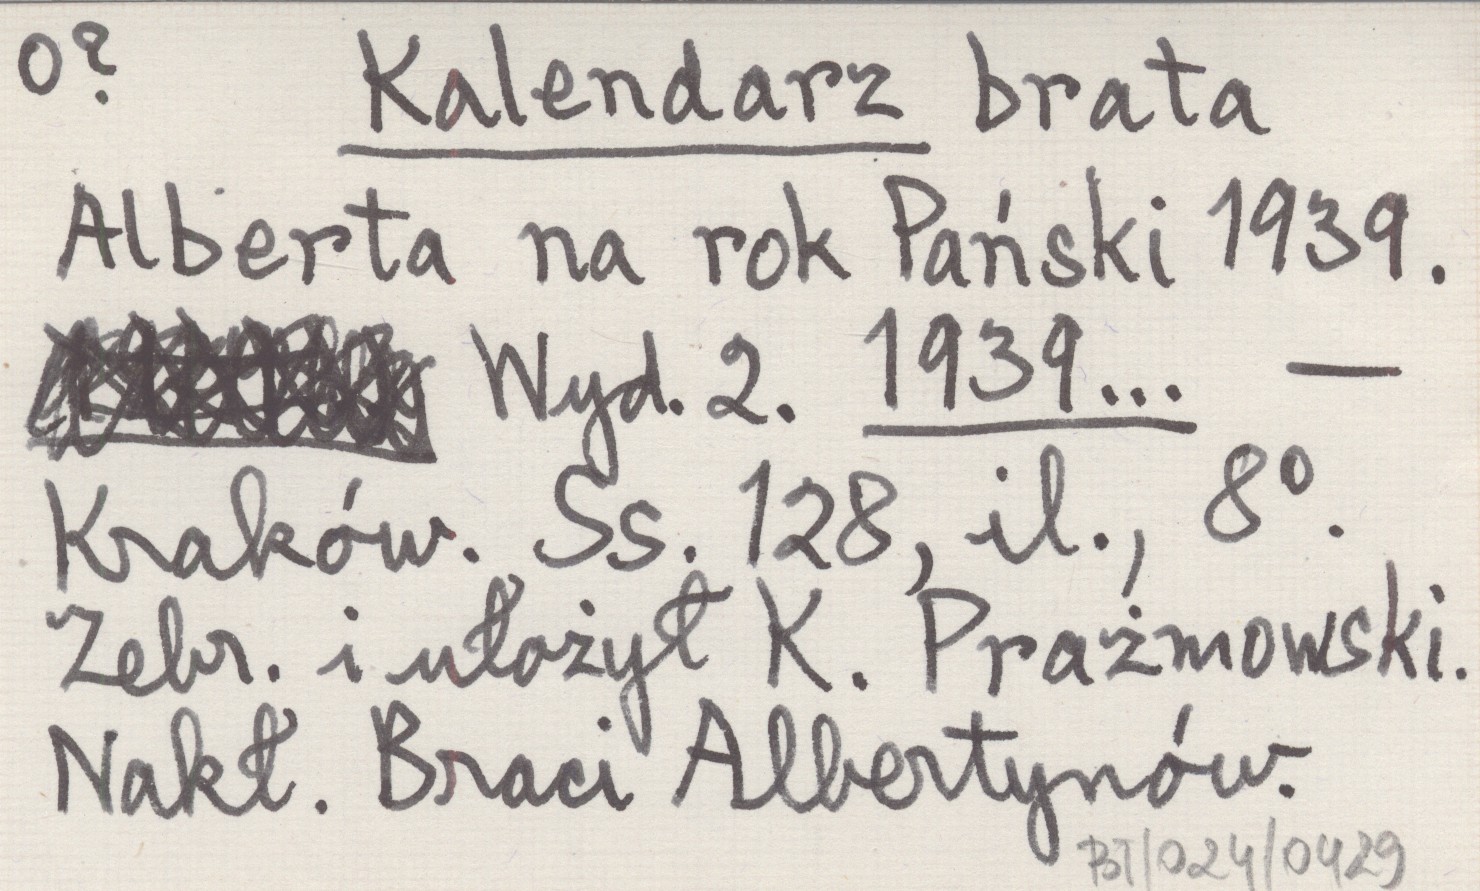 0? Kalendarz brata
Alberta na rok Pański 1939.
Wyd. 2. 1939... —
Kraków. Ss. 128, il., 8°.
Zebr. i ułożył K. Prażmowski.
Nakł. Braci Albertynów.
BT/024/0429